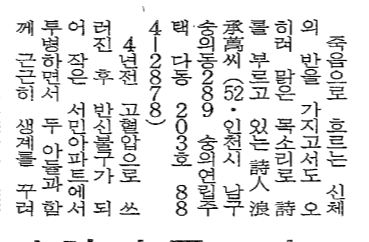 죽음으로 흐르는 신체
의 반을 가지고서도 오
히려 맑은 목소리로 詩
를 부르고 있는 詩人 浪
承萬씨(52·인천시 남구
숭의동289 숭의연립주
택 다동 203호 88
4―2878)
4년전 고혈압으로 쓰
러진 후 반신불구가 되
어 작은 서민아파트에서
투병하면서 두 아들과 함
께 근근히 생계를 꾸려